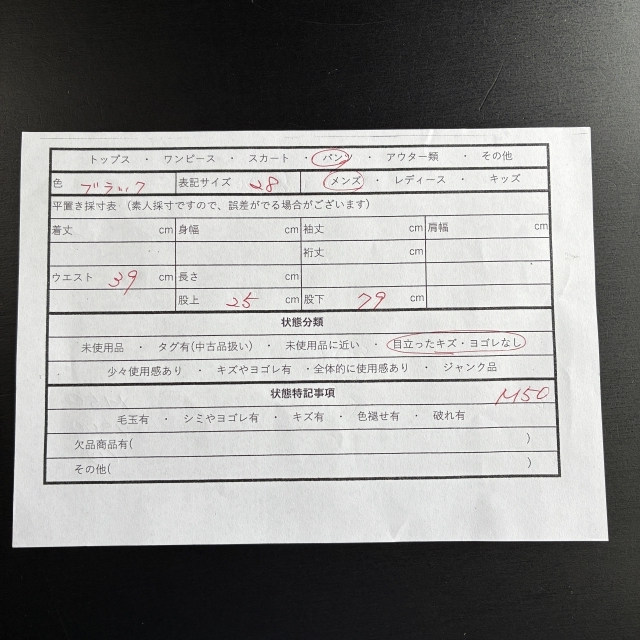 トップス ・ ワンピース ・ スカート ・ パンツ ・ アウター類 ・ その他
色 ブラック 表記サイズ 28 メンズ ・ レディース ・ キッズ
平置き採寸表 (素人採寸ですので、誤差がでる場合がございます)
着丈 cm 身幅 cm 袖丈 cm 肩幅 cm
裄丈 cm
ウエスト 39 cm 長さ cm
股上 25 cm 股下 79 cm
状態分類
未使用品 ・ タグ有(中古品扱い) ・ 未使用品に近い ・ 目立ったキズ・ヨゴレなし
少々使用感あり ・ キズやヨゴレ有 ・全体的に使用感あり ・ ジャンク品
状態特記事項 M50
毛玉有 ・ シミやヨゴレ有 ・ キズ有 ・ 色褪せ有 ・ 破れ有
欠品商品有( )
その他( )